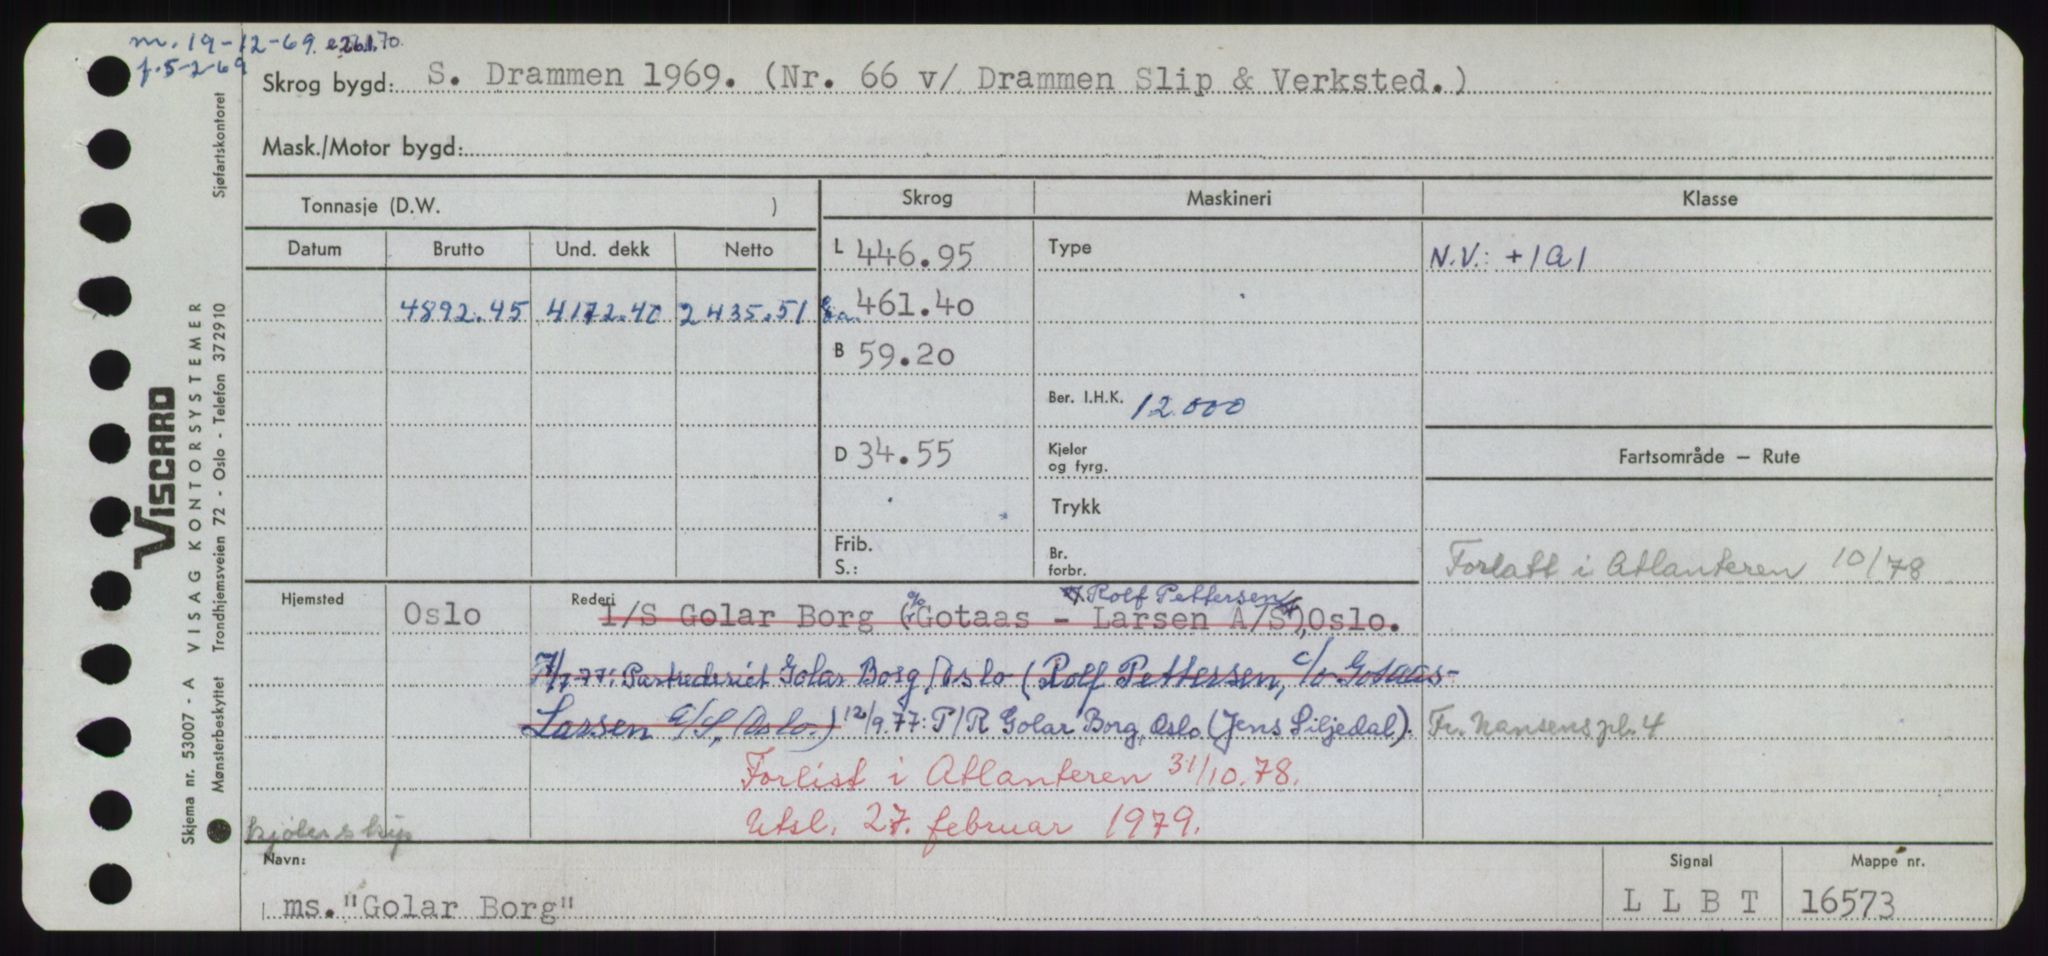 m. 19-12-69. e 26.1.70.
f. 5-2-69
Skrog bygd: S. Drammen 1969. (Nr. 66 v/ Drammen Slip & Verksted.)
Mask./Motor bygd:
Tonnasje (D.W. )
Skrog Maskineri Klasse
Datum Brutto Und. dekk Netto
L 446.95 Type N.V.: +1A1
4892.45 4172.40 2435.51 461.40
B 59.20
Ber. I.H.K. 12.000
D 34.55 Kjeler og fyrg. Fartsområde — Rute
Trykk
Frib. S.: Br. forbr. Forlatt i Atlanteren 10/78
Rolf Pettersen
Hjemsted Oslo Rederi I/S Golar Borg (c/o Gotaas - Larsen A/S), Oslo.
7/7-77: Partrederiet Golar Borg, Oslo (Rolf Pettersen, c/o Gotaas-
Larsen A/S, Oslo.) 12/9.77: P/R Golar Borg, Oslo (Jens Siljedal). Fr. Nansens pl. 4
Forlist i Atlanteren 31/10.78.
Utsl. 27. februar 1979.
kjøleskip
Navn: ms. "Golar Borg"
Signal L L B T
Mappe nr. 16573
VISCARD
Skjema nr. 53007 - A VISAG KONTORSYSTEMER
Mønsterbeskyttet Trondhjemsveien 72 - Oslo - Telefon 372910 Sjøfartskontoret